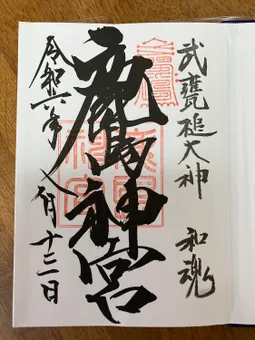 武甕槌大神 和魂
鹿島神宮
令和六年八月十二日